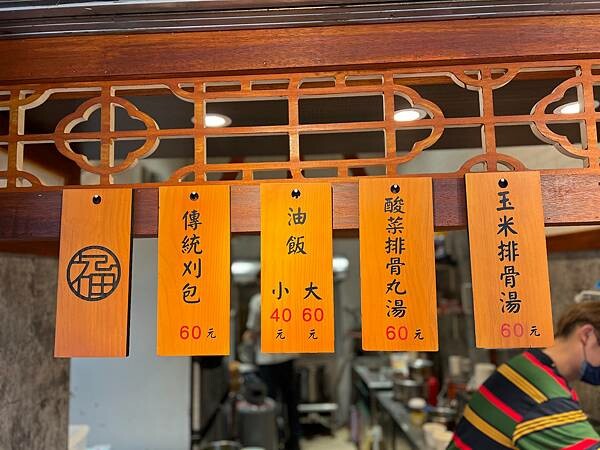 福
傳統刈包
60元
油飯
小 大
40元 60元
酸菜排骨丸湯
60元
玉米排骨湯
60元